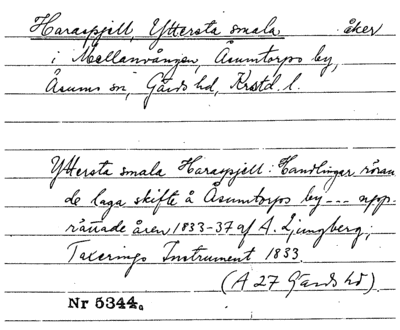 Haraspjell, Yttersta smala åker
i Mellanvången, Åsumtorps by,
Åsums sn, Gärds hd, Krstd. l.
Yttersta smala Haraspjell: Handlingar röran
de laga skifte å Åsumtorps by --- upp-
rättade åren 1833-37 af A. Ljungberg;
Taxerings Instrument 1833.
(A 27 Gärds hd).
Nr 5344.